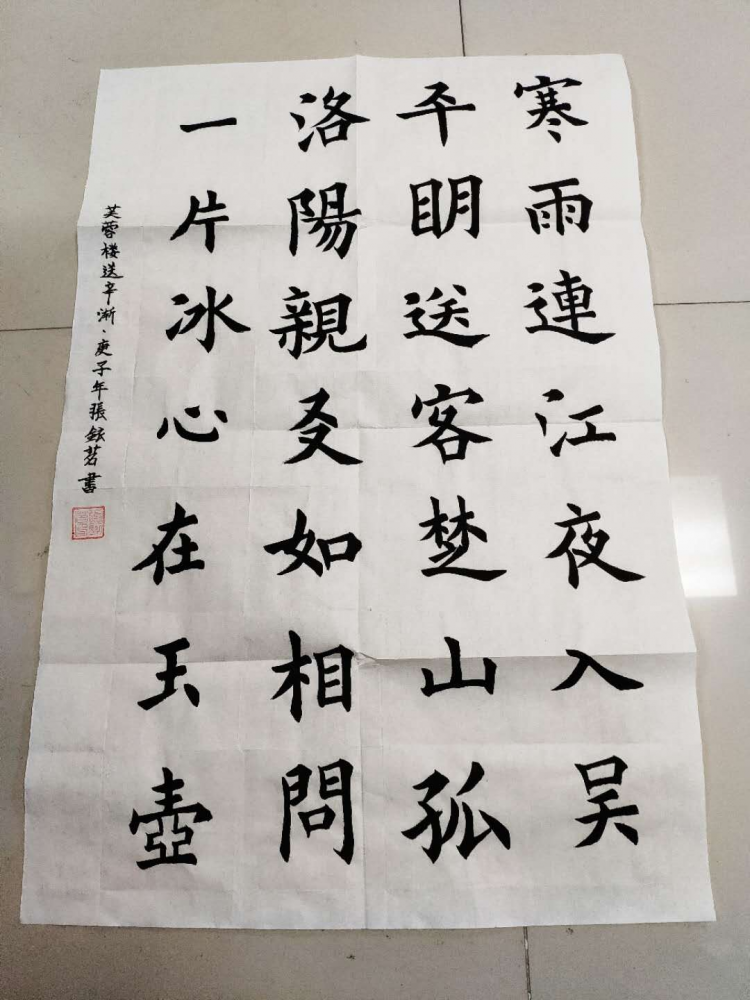 寒雨連江夜入吴
平明送客楚山孤
洛陽親友如相問
一片冰心在玉壺
芙蓉楼送辛渐、庚子年張銥茗書